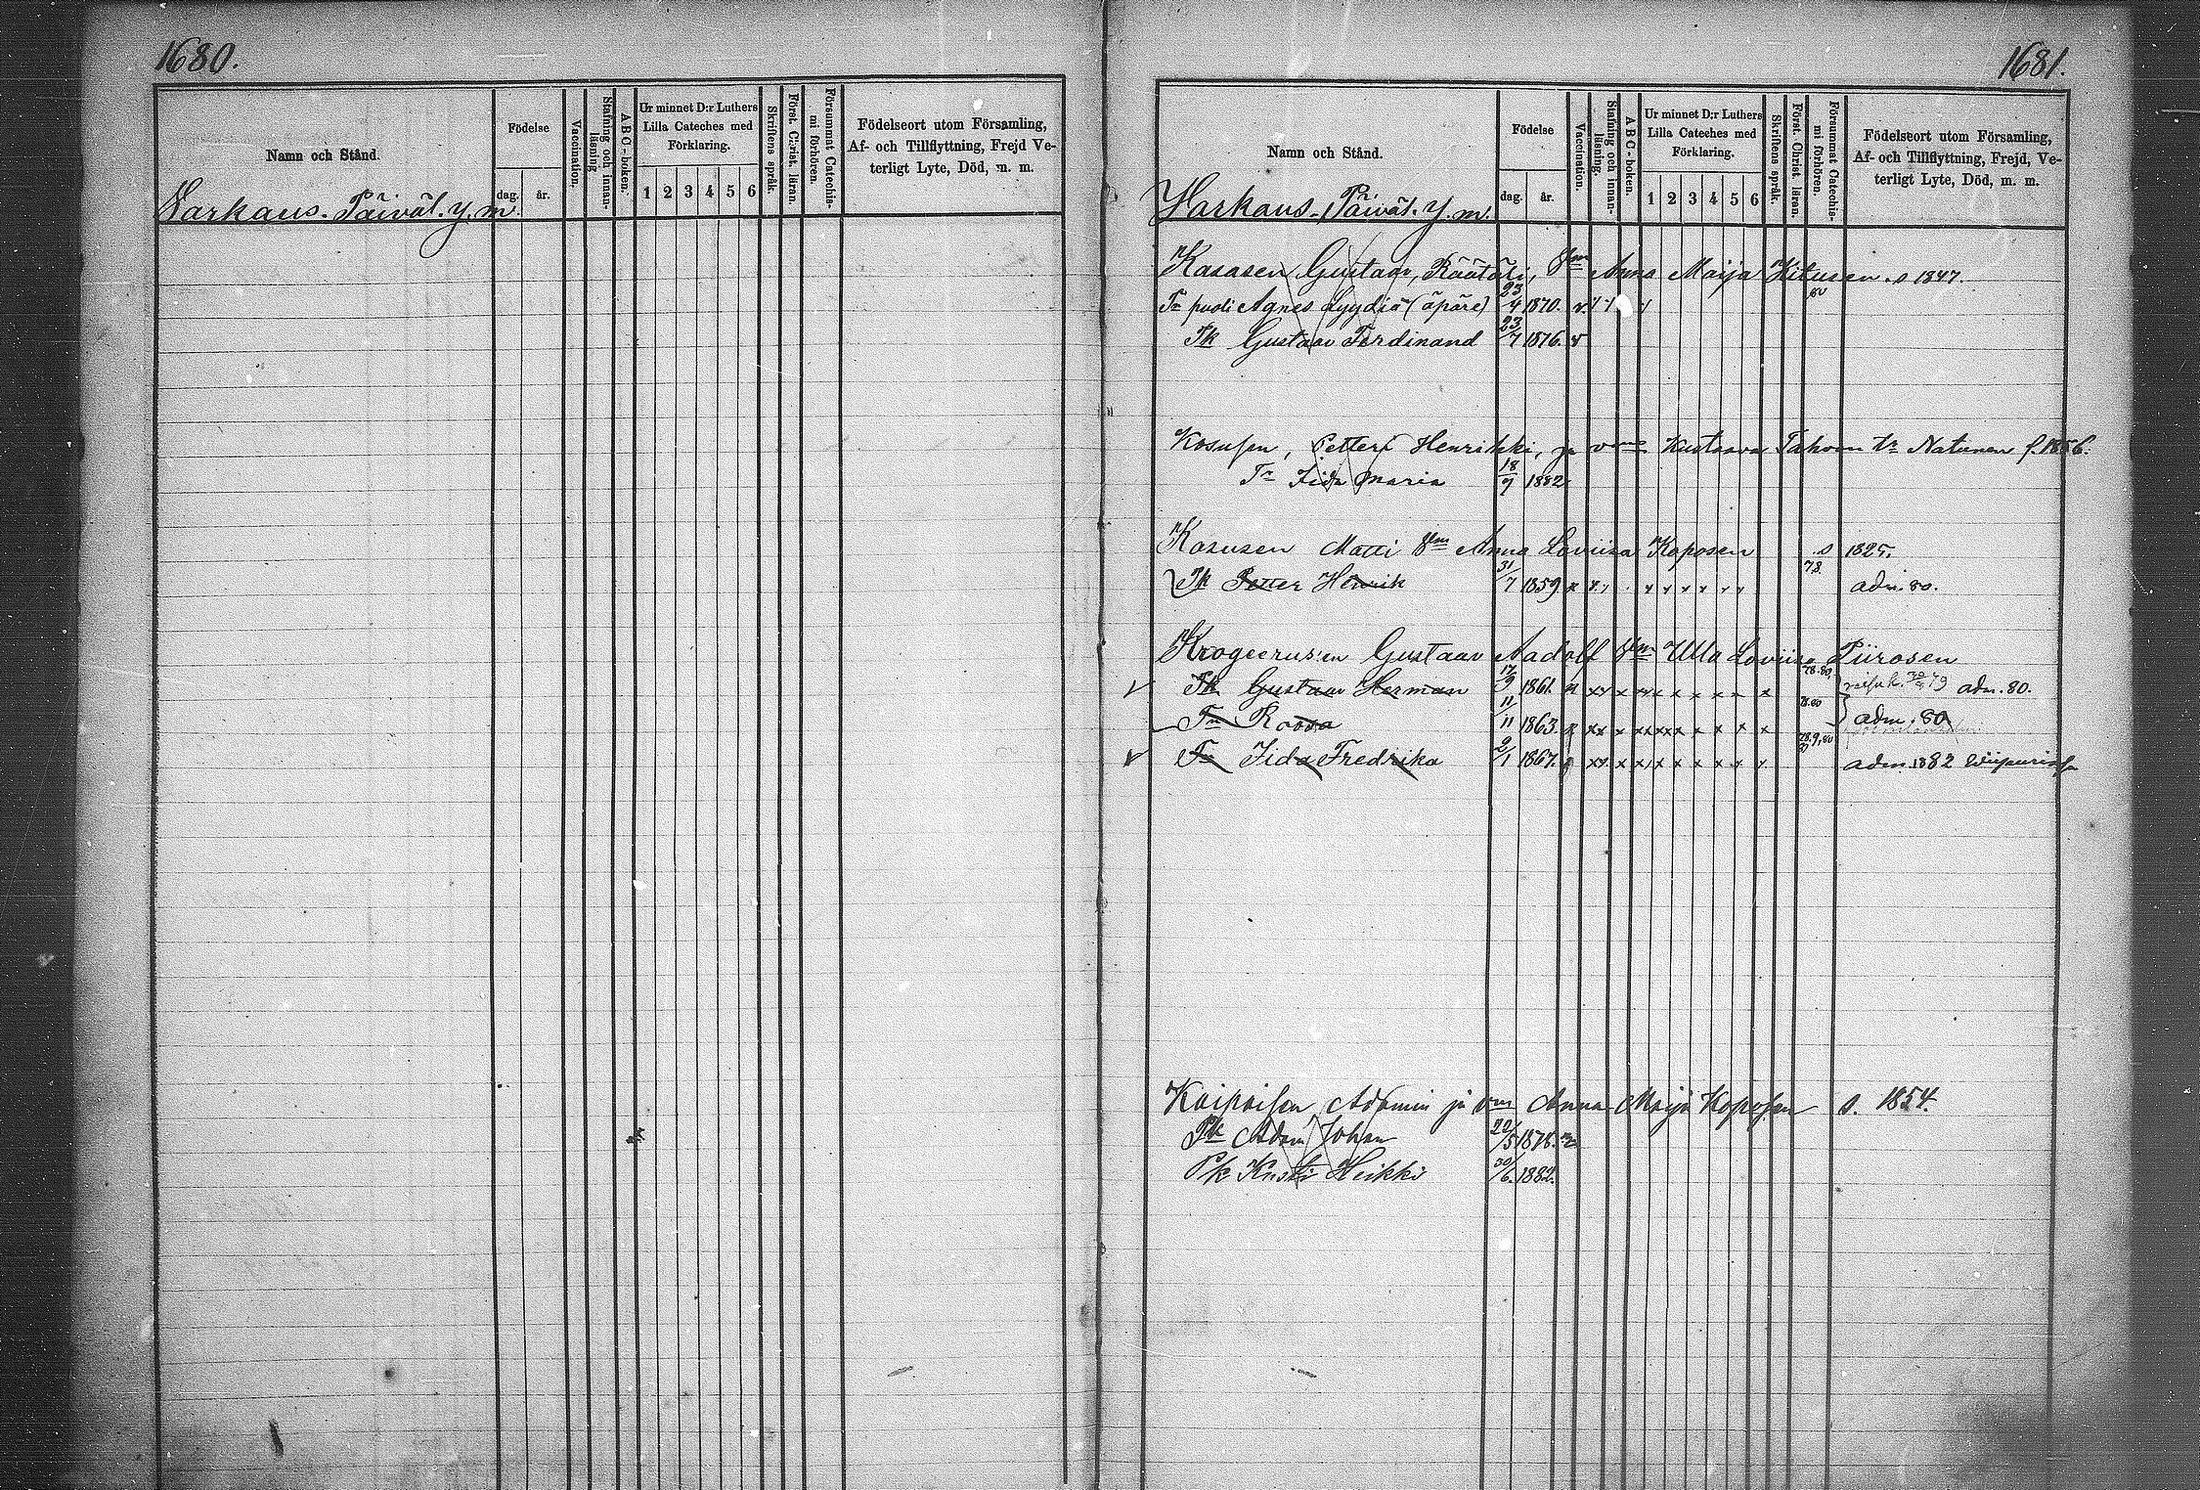 1680.
Namn och Stånd.
Födelse
dag.
år.
Vaccination.
Stafning och innan-
läsning
A B C - boken.
Ur minnet D:r Luthers
Lilla Cateches med
Förklaring.
1 2 3 4 5 6
Skriftens språk.
Först. Christ. läran.
Försummat Catechis-
mi förhören.
Födelseort utom Församling,
Af- och Tillflyttning, Frejd Ve-
terligt Lyte, Död, m. m.
Varkaus. Päiväl. y. m
1681.
Namn och Stånd.
Födelse
dag.
år.
Vaccination.
Stafning och innan-
läsning.
A B C - boken.
Ur minnet D:r Luthers
Lilla Cateches med
Förklaring.
1 2 3 4 5 6
Skriftens språk.
Först. Christ. läran.
Försummat Catechis-
mi förhören.
Födelseort utom Församling,
Af- och Tillflyttning, Frejd, Ve-
terligt Lyte, Död, m. m.
Varkaus. Päiväl. y. m.
Kasasen Gustaav, Räätäli, Vm Anna Maija Hitusen. s 1847.
Tr puoli Agnes Lyydia (äpäre) 23/4 1870. v.
Pk Gustaav Ferdinand 23/7 1876. v
Kosusen, Petteri Henrikki, ja vmo Kustaava Tahvon tr Natunen f. 1856.
Tr Iida Maria 18/9 1882
Kosusen Matti Vm Anna Loviisa Koposen s 1825.
Pk Petter Henrik 31/7 1859 x x x x x x x x x 78. adm. 80.
Krogeerus:en Gustaav Aadolf Vm Ulla Loviisa Piirosen
Pk Gustaav Herman 17/9 1861. 78.80, 79 adm. 80.
Tr Roosa 11/11 1863. 78.80 adm. 80
Tr Iida Fredrika 2/1 1867. 78.9,80 adm. 1882 Wiipurissa
Kaipaisen Adamin ja vmo Anna Maija Koposen s. 1854.
Pk Adam Johan 22/5 1878.
Pk Kusti Heikki 30/6. 1882.